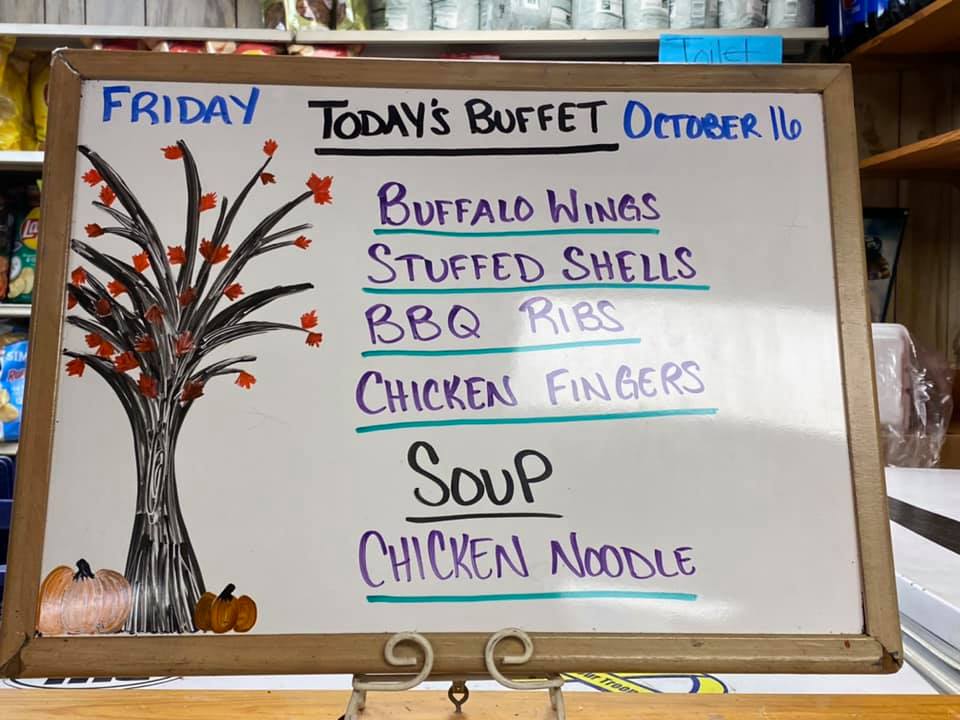 Toilet
FRIDAY TODAY'S BUFFET OCTOBER 16
BUFFALO WINGS
STUFFED SHELLS
BBQ RIBS
CHICKEN FINGERS
SOUP
CHICKEN NOODLE